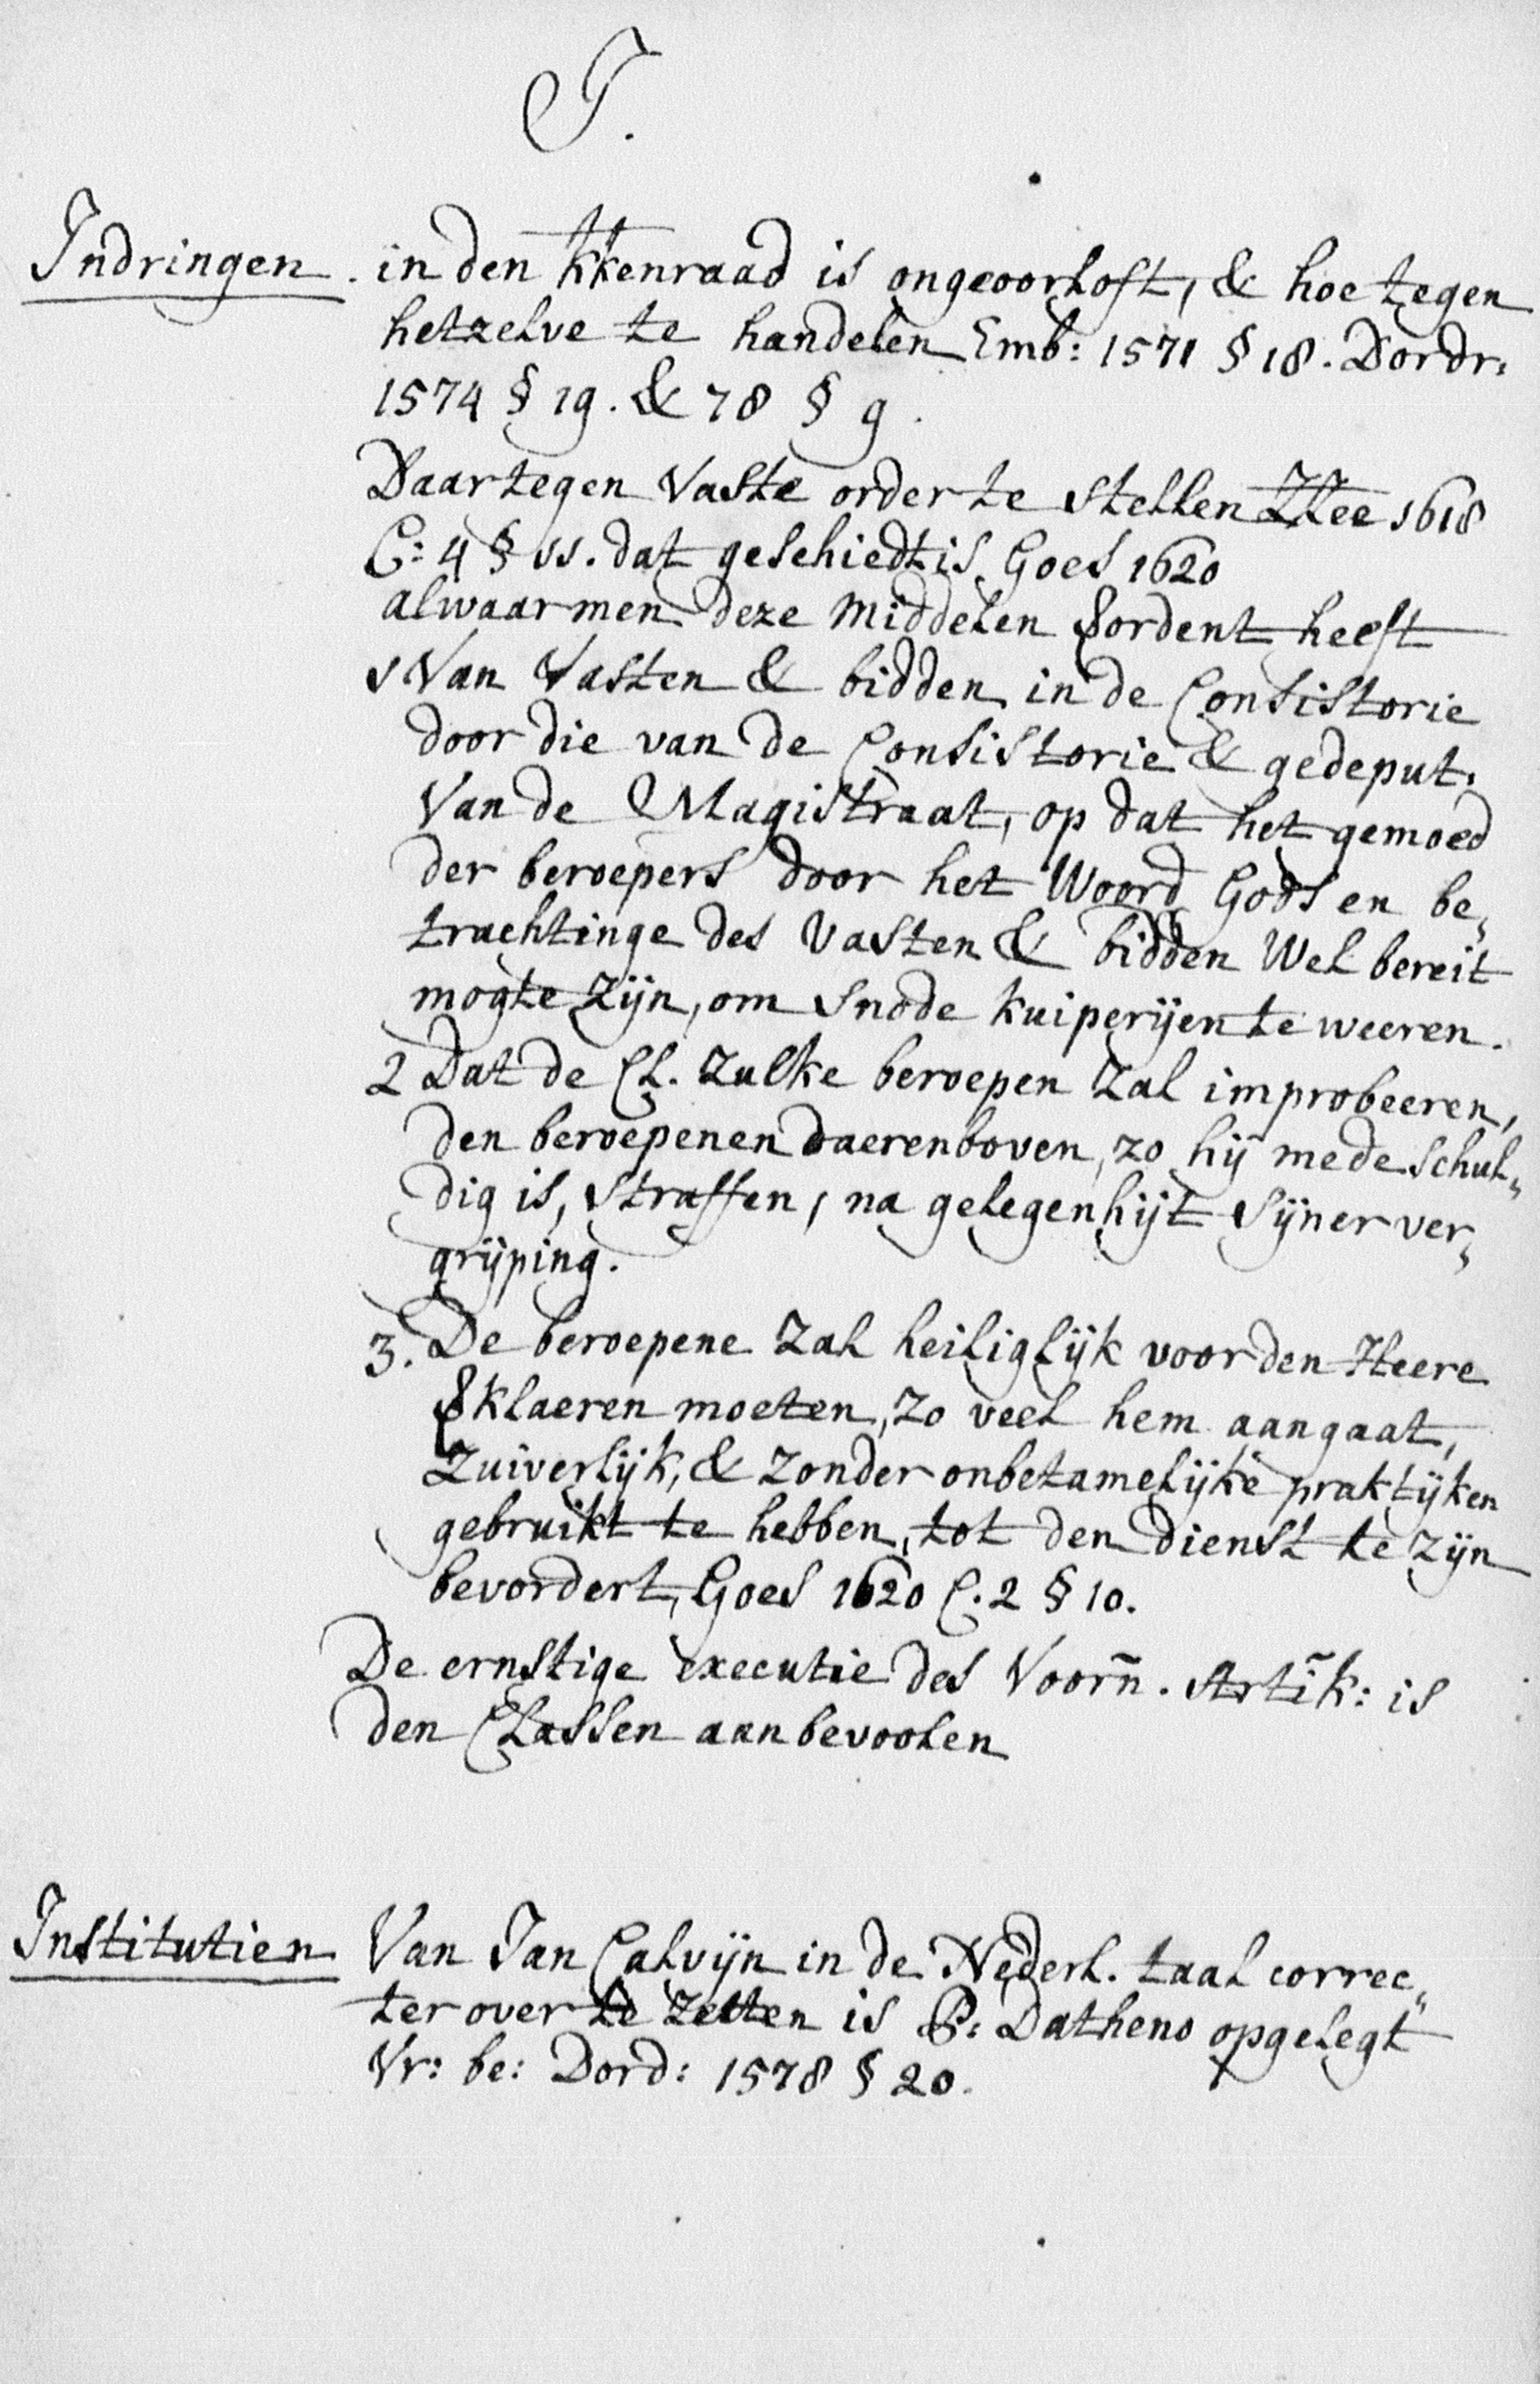 I.
Indringen. in den kkenraad is ongeoorloft, & hoe tegen
hetzelve te handelen Emb: 1571 § 18. Dordr.
1574 § 19. & 78 § 9.
Daartegen vaste order te stellen ZZee 1618
C: 4 § 11. dat geschiedt is Goes 1620
alwaar men deze middelen ordent heeft
1 Van Vasten & bidden in de Consistorie
door die van de Consistorie & gedeput.
Van de Magistraat, op dat het gemoed
der beroepers door het Woord Gods en be„
trachtinge des Vasten & bidden Wel bereit
mogte zijn, om snode kuiperijen te weeren.
2 Dat de Cl. zulke beroepen zal improbeeren,
den beroepenen daerenboven, zo hij mede schul„
dig is, straffen, na gelegenhijt sijner ver„
grijping.
3. De beroepene zal heiliglijk voor den Heere
klaeren moeten, zo veel hem aangaat,
zuiverlijk, & zonder onbetamelijke praktijken
gebruikt te hebben, tot den dienst te zijn
bevordert, Goes 1620 C. 2 § 10.
De ernstige executie des Voorñ. Artik: is
den Classen aanbevoolen
Institutien Van Jan Calvijn in de Nederl. taal correc„
ter over te zetten is P: Datheno opgelegt
Vr: be: Dord: 1578 § 20.